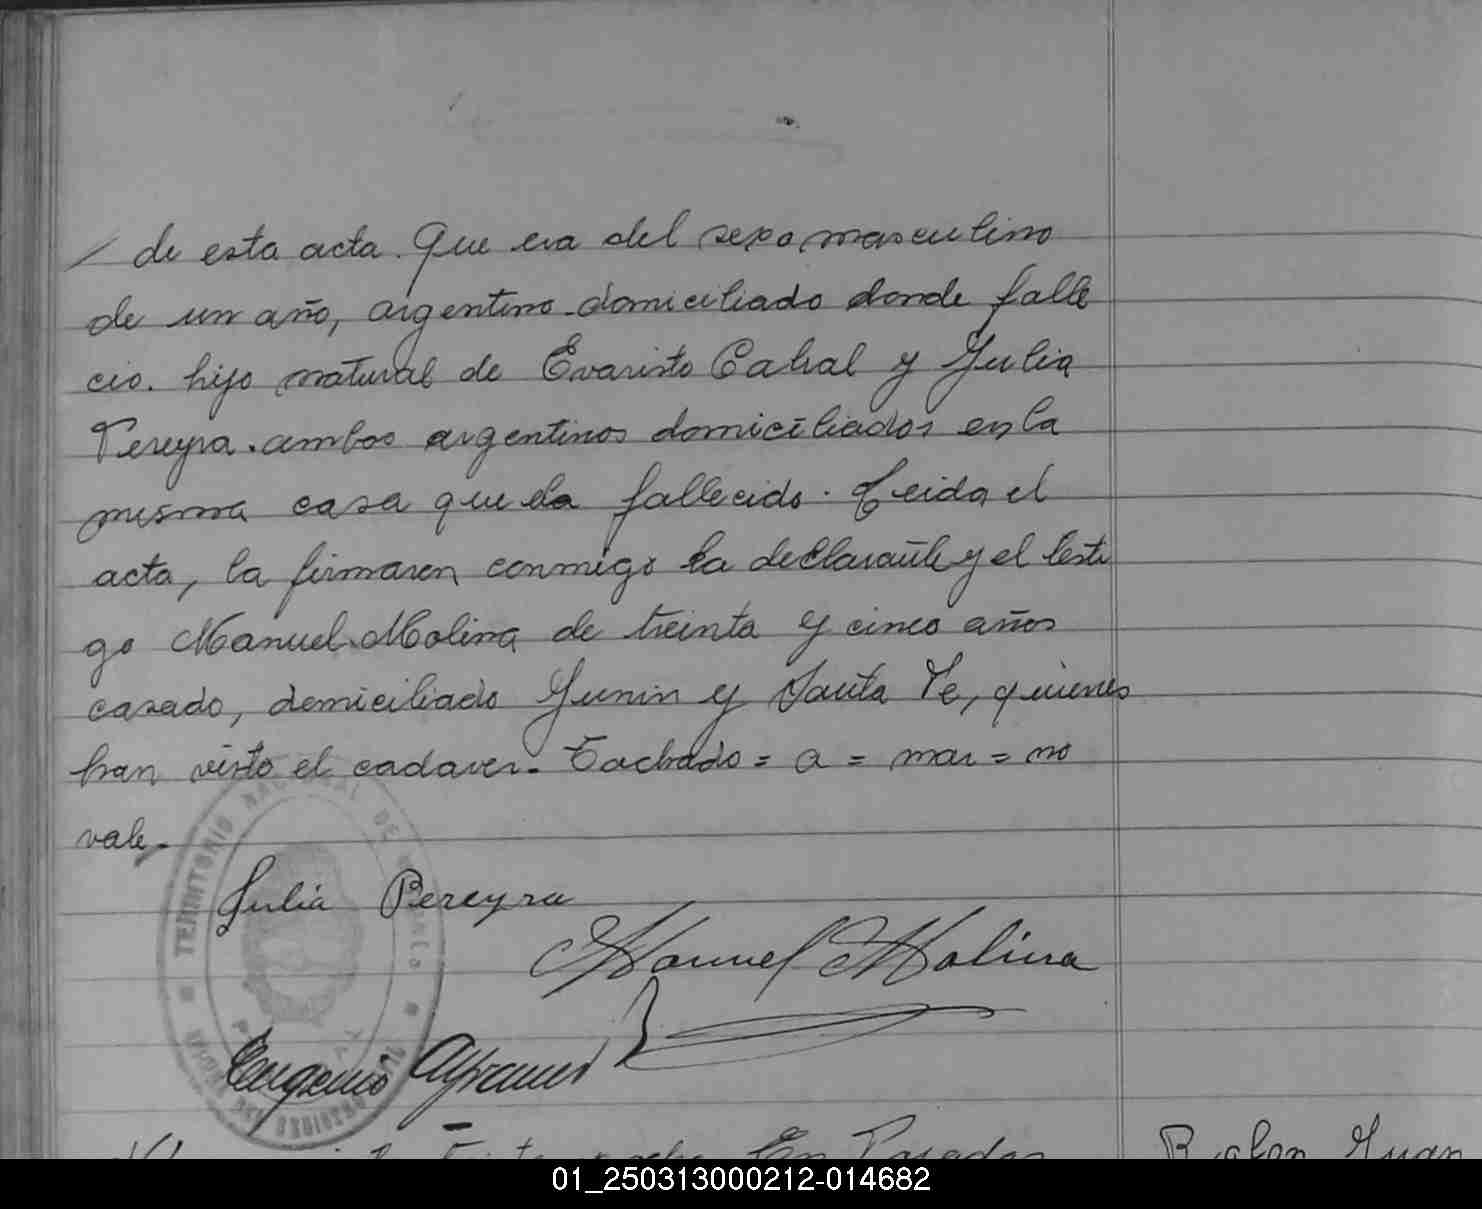 / de esta acta. Que era del sexo masculino
de un año, argentino domiciliado donde falle
cio. hijo natural de Evaristo Cabral y Julia
Pereyra. ambos argentinos domiciliados en la
misma casa que la fallecido. Leida el
acta, la firmaron conmigo la declarante y el testi
go Manuel Molina de treinta y cinco años
casado, domiciliado Junin y Santa Fe, quienes
han visto el cadaver. Tachado = a = mar = no
vale.
TERRITORIO NACIONAL DE
Julia Pereyra
Manuel Molina
Eugenio
En Posadas
Juan
01_250313000212-014682